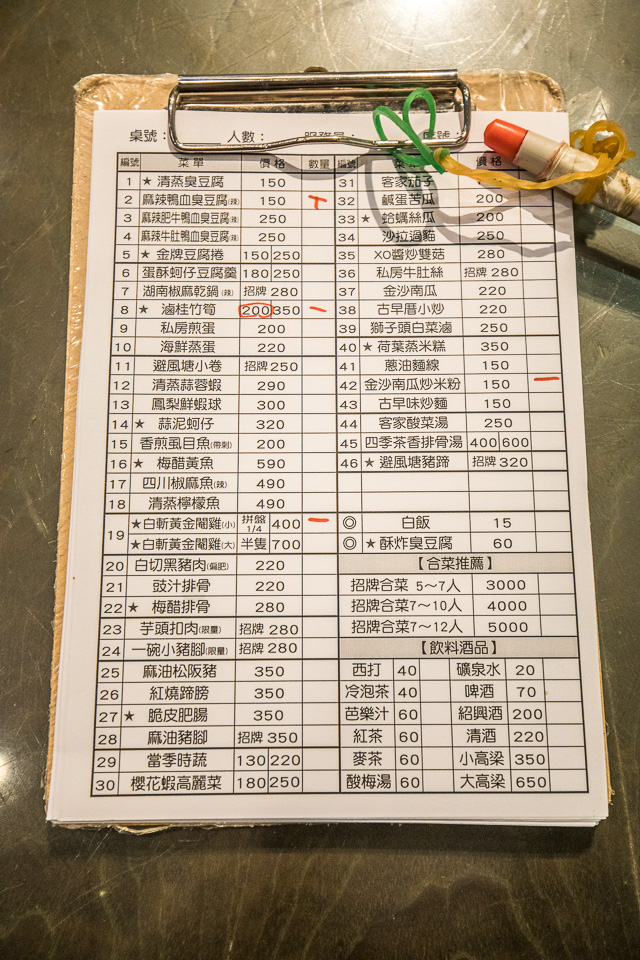 桌號： 人數：
編號 菜單 價格 數量 編號 價格
1 ★清蒸臭豆腐 150 31 客家茄子
2 麻辣鴨血臭豆腐(辣) 150 32 鹹蛋苦瓜 200
3 麻辣肥牛鴨血臭豆腐(辣) 250 33 ★ 蛤蠣絲瓜 200
4 麻辣牛肚鴨血臭豆腐(辣) 250 34 沙拉過貓 250
5 ★金牌豆腐捲 150 250 35 XO醬炒雙菇 280
6 蛋酥蚵仔豆腐羹 180 250 36 私房牛肚絲 招牌 280
7 湖南椒麻乾鍋(辣) 招牌 280 37 金沙南瓜 220
8 ★ 滷桂竹筍 200 350 38 古早厝小炒 220
9 私房煎蛋 200 39 獅子頭白菜滷 250
10 海鮮蒸蛋 220 40 ★荷葉蒸米糕 350
11 避風塘小卷 招牌 250 41 蔥油麵線 150
12 清蒸蒜蓉蝦 290 42 金沙南瓜炒米粉 150
13 鳳梨鮮蝦球 300 43 古早味炒麵 150
14 ★ 蒜泥蚵仔 320 44 客家酸菜湯 250
15 香煎虱目魚(帶刺) 200 45 四季茶香排骨湯 400 600
16 ★ 梅醋黃魚 590 46 ★避風塘豬蹄 招牌 320
17 四川椒麻魚(辣) 490
18 清蒸檸檬魚 490
19 ★白斬黃金閹雞(小) 拼盤 1/4 400 ◎ 白飯 15
★白斬黃金閹雞(大) 半隻 700 ◎ ★酥炸臭豆腐 60
20 白切黑豬肉(偏肥) 220 【合菜推薦】
21 豉汁排骨 220 招牌合菜 5~7人 3000
22 ★ 梅醋排骨 280 招牌合菜7~10人 4000
23 芋頭扣肉(限量) 招牌 280 招牌合菜7~12人 5000
24 一碗小豬腳(限量) 招牌 280 【飲料酒品】
25 麻油松阪豬 350 西打 40 礦泉水 20
26 紅燒蹄膀 350 冷泡茶 40 啤酒 70
27 ★ 脆皮肥腸 350 芭樂汁 60 紹興酒 200
28 麻油豬腳 招牌 350 紅茶 60 清酒 220
29 當季時蔬 130 220 麥茶 60 小高梁 350
30 櫻花蝦高麗菜 180 250 酸梅湯 60 大高梁 650